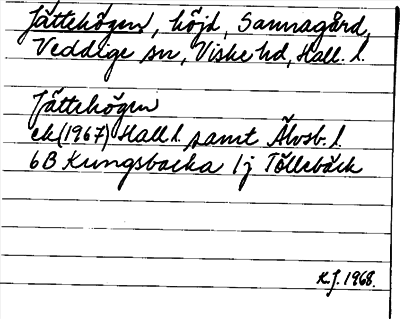 Jättehögen, höjd, Sannagård,
Veddige sn, Viske hd, Hall. l.
Jättehögen
ek (1967) Hall l. samt Älvsb. l.
6B Kungsbacka 1j Töllebäck
K.J. 1968.